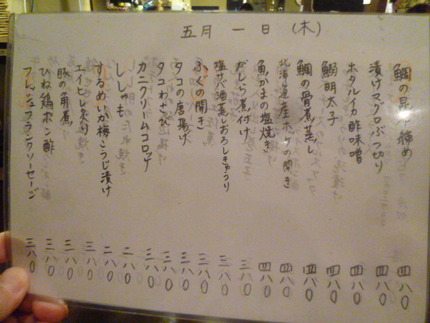 五月一日(木)
鯛の昆布締め 四八〇
漬けマグロぶつ切り 四八〇
ホタルイカ酢味噌 四八〇
鰯明太子 四八〇
鯛の骨煮蒸し 四八〇
北海道産ホッケの開き 四八〇
魚かまの塩焼き 四八〇
がしら煮付け 三八〇
塩サバ油蒸しおろしきゅうり 三八〇
ふぐの開き 三八〇
タコの唐揚げ 三八〇
タコわさび 三八〇
カニクリームコロッケ 二八〇
ししゃも 二八〇
するめいか梅こうじ漬け 二八〇
エイヒレ炙り 三八〇
豚の角煮 三八〇
ひね鶏ポン酢 三八〇
フレッシュフランクソーセージ 三八〇